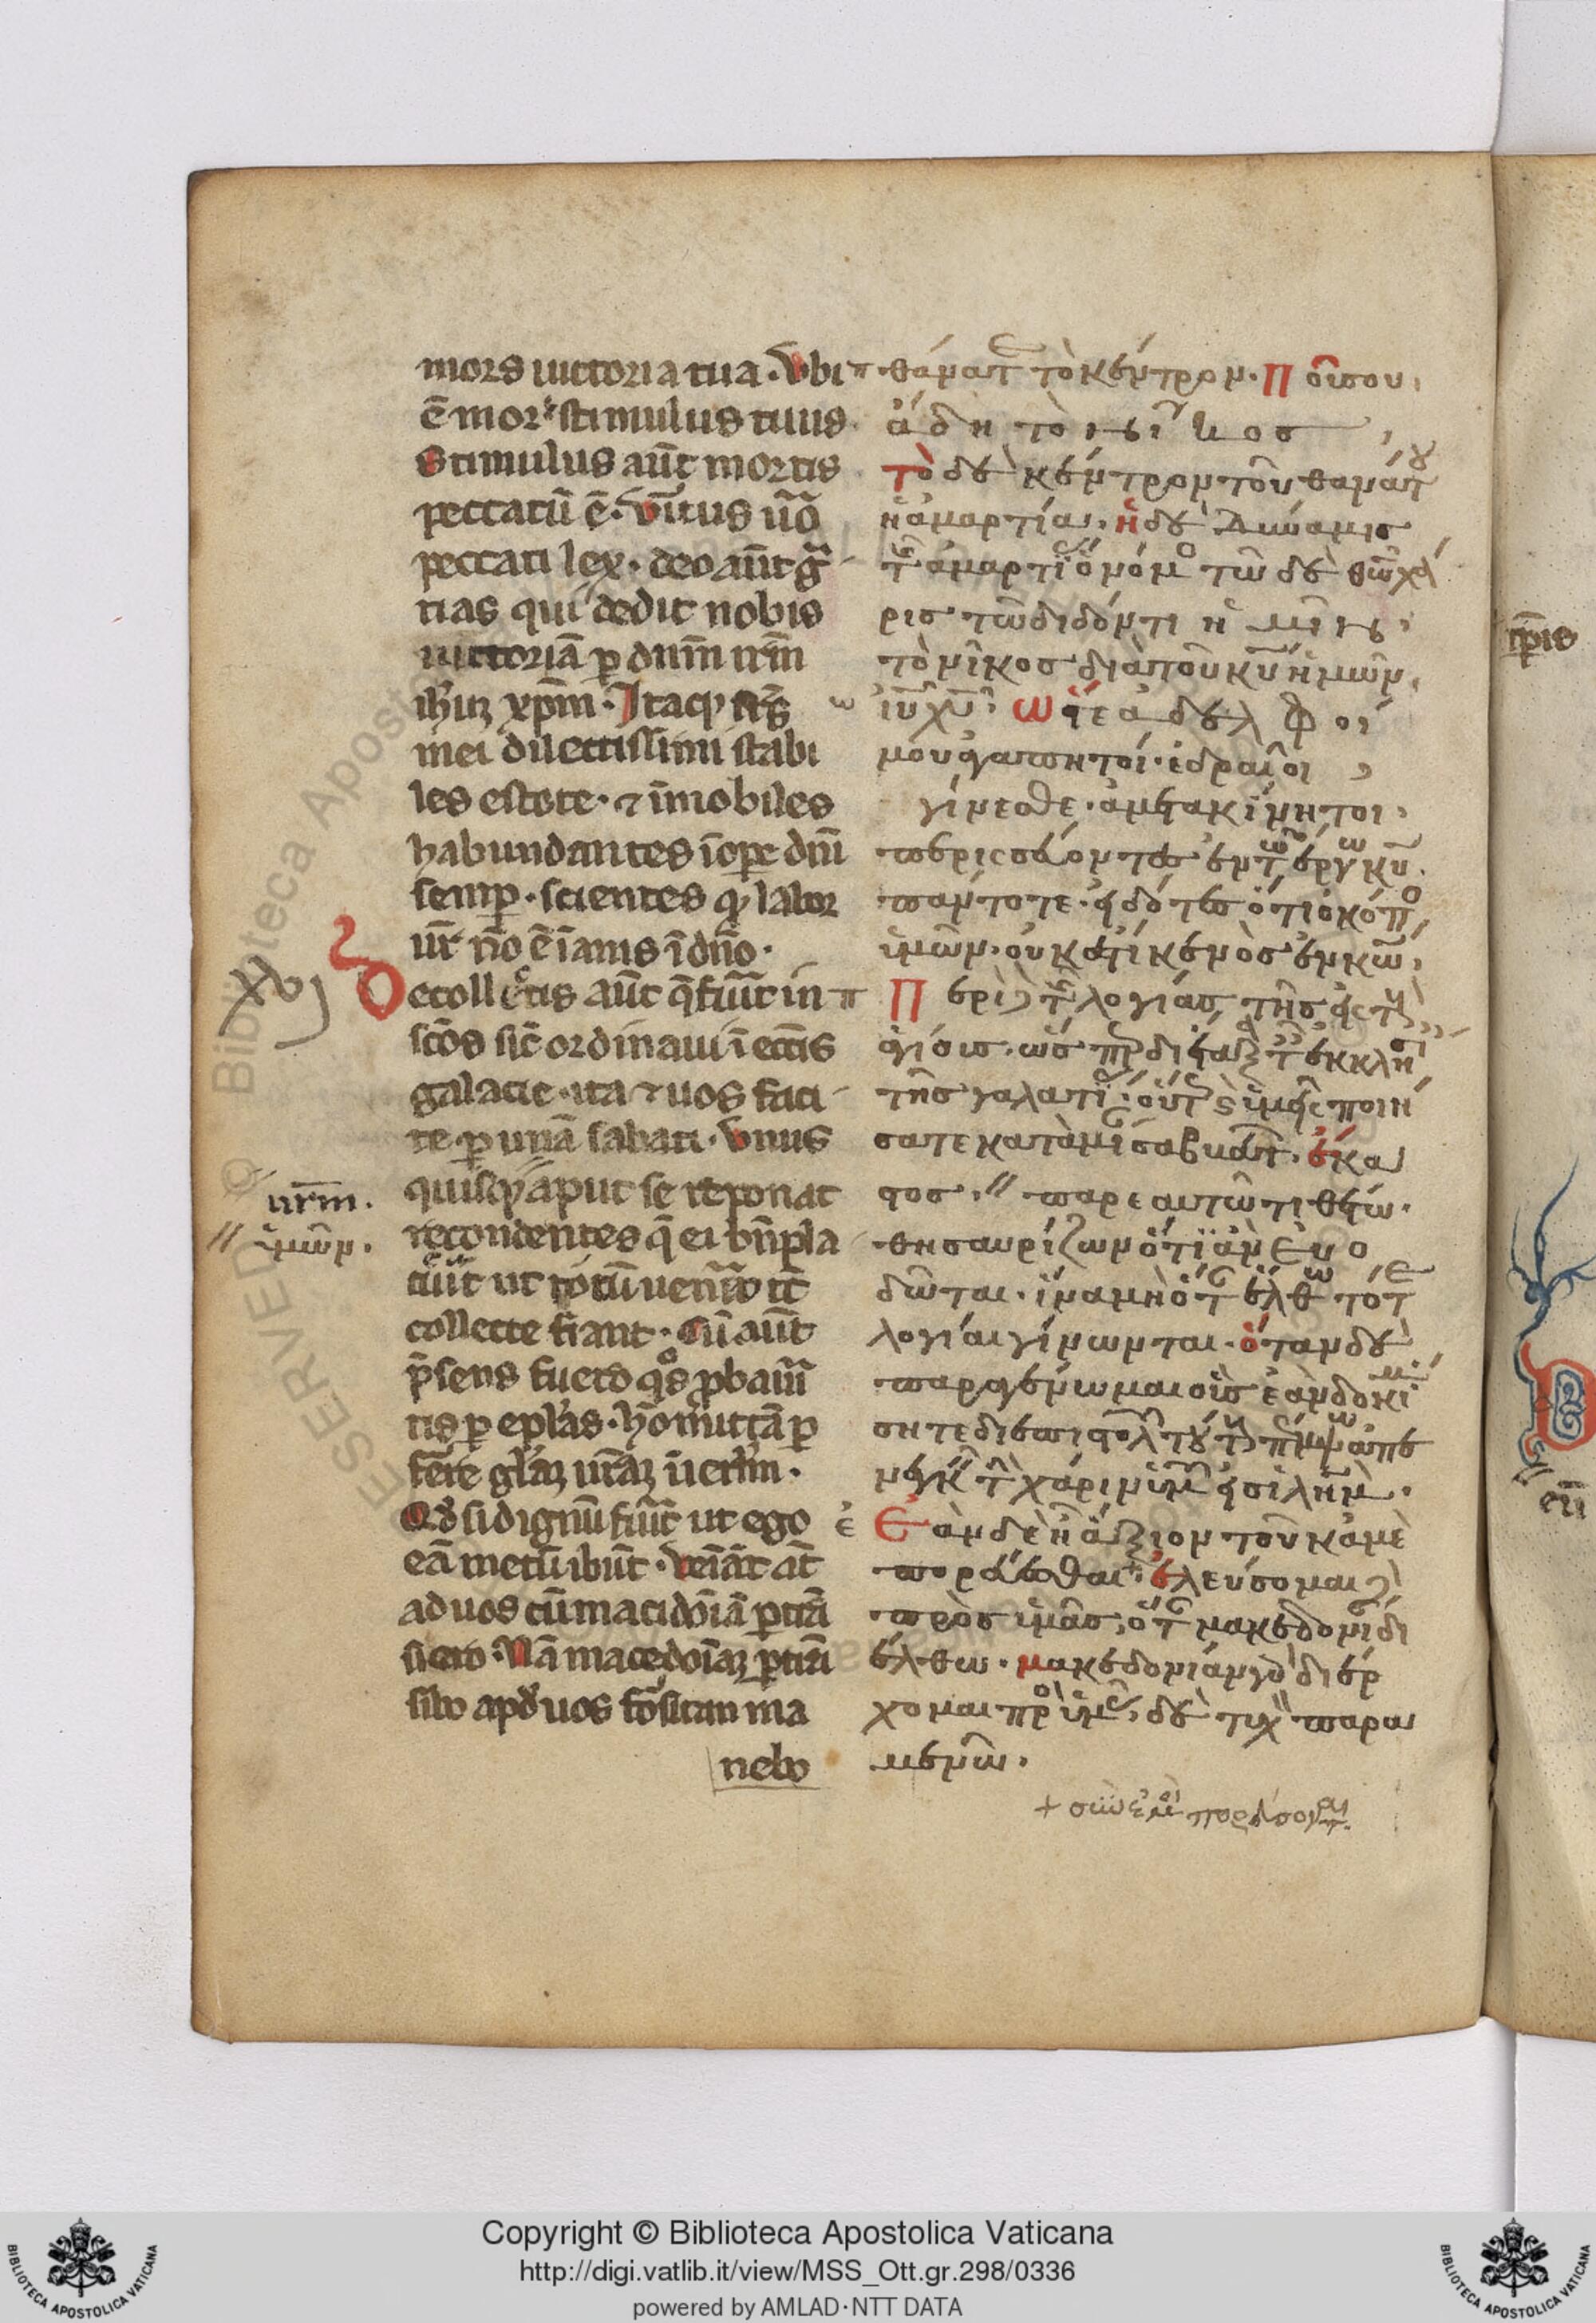 mors uictoria tua. Ubi
ē mors stimulus tuus.
Stimulus aūt mortis
peccatū ē. Uirtus ūo
peccati lex. deo aūt grā
tias qui dedit nobis
uictoriā p dnm nrm
ihm xpm. Itaq frs
mei dilectissimi stabi
les estote. ⁊ īmobiles
habundantes ī ope dni
semp. scientes q labor
ur nō ē īanis ī dno.
xvi
De collectis aūt q fiūt in
scos sic ordinaui ī eccis
galacie. ita ⁊ uos faci
te. p unā sabati. Unus
quisq aput se reponat
recondentes q ei bn pla
cūit ut nō cū uenero tc
collecte fiant. Cū aūt
psens fuero qos pbaui
tis p eplas. hos mittā p
ferre grām urām ī ierlm.
Qd si dignū fuit ut ego
eā mecū ibūt. Ueniā at
ad uos cū macidoniā ptrāi
siero. Nā macedoniam ptrāi
sibo apd uos forsitan ma
nebo
nrm.
ἡμῶν.
π
θάνατ τὸ κέντρον. Ποῦ σου
ἅδη τὸ νεῖκος
τὸ δὲ κέντρον τοῦ θανάτου
ἡ ἁμαρτία. ἡ δὲ δύναμις
τ ἁμαρτί ὁ νόμο τῶ δὲ θω χά
ρις τῶ διδόντι ἡμῖν
τὸ νῖκος διὰ τοῦ κυ ἡμῶν
ω
ιυ χυ. ὥστε ἀδελφοί
μου ἀγαπητοί. ἑδραῖοι
γίνεσθε. ἀμετακίνητοι.
περισσεύοντες ἐν τῶ ἔργω κυ.
πάντοτε. εἰδότες ὅτι ὁ κόπο
ὑμῶν. οὐκ ἔστι κενὸς ἐν κω.
π
Περὶ τ λογίας τῆς εἰς τ
ἁγίους. ὡς πρ διέταξα τ ἐκκλησί
τῆς γαλατί. οὕτ ὑμεῖς ποιή
σατε κατὰ μί σαββάτ. ἕκα
στος. παρ ἑαυτῶ τιθέτω.
θησαυρίζων ὅτι ἂν εὐο
δῶται. ἵνα μὴ ὅτ ἔλθω τότε
λογίαι γίνωνται. ὅταν δὲ
παραγένωμαι οὓς ἐὰν δοκιμά
σητε δι ἐπιστολ τού πέμψω ἀπε
νεγκ τ χάριν ὑμ εἰς ιλημ.
ε
Ἐὰν δὲ ἦ ἄξιον τοῦ κἀμὲ
πορεύεσθαι. ἐλεύσομαι
πρὸς ὑμᾶς, ὅτ μακεδονί δι
έλθω. μακεδονίαν γὰρ διέρ
χομαι. πρὸ ὑμ. δὲ τυχ παρα
μενῶ.
+ σὺν ἐμοὶ πορεύσονται.
rpis
D
eu
Copyright © Biblioteca Apostolica Vaticana
http://digi.vatlib.it/view/MSS_Ott.gr.298/0336
powered by AMLAD·NTT DATA